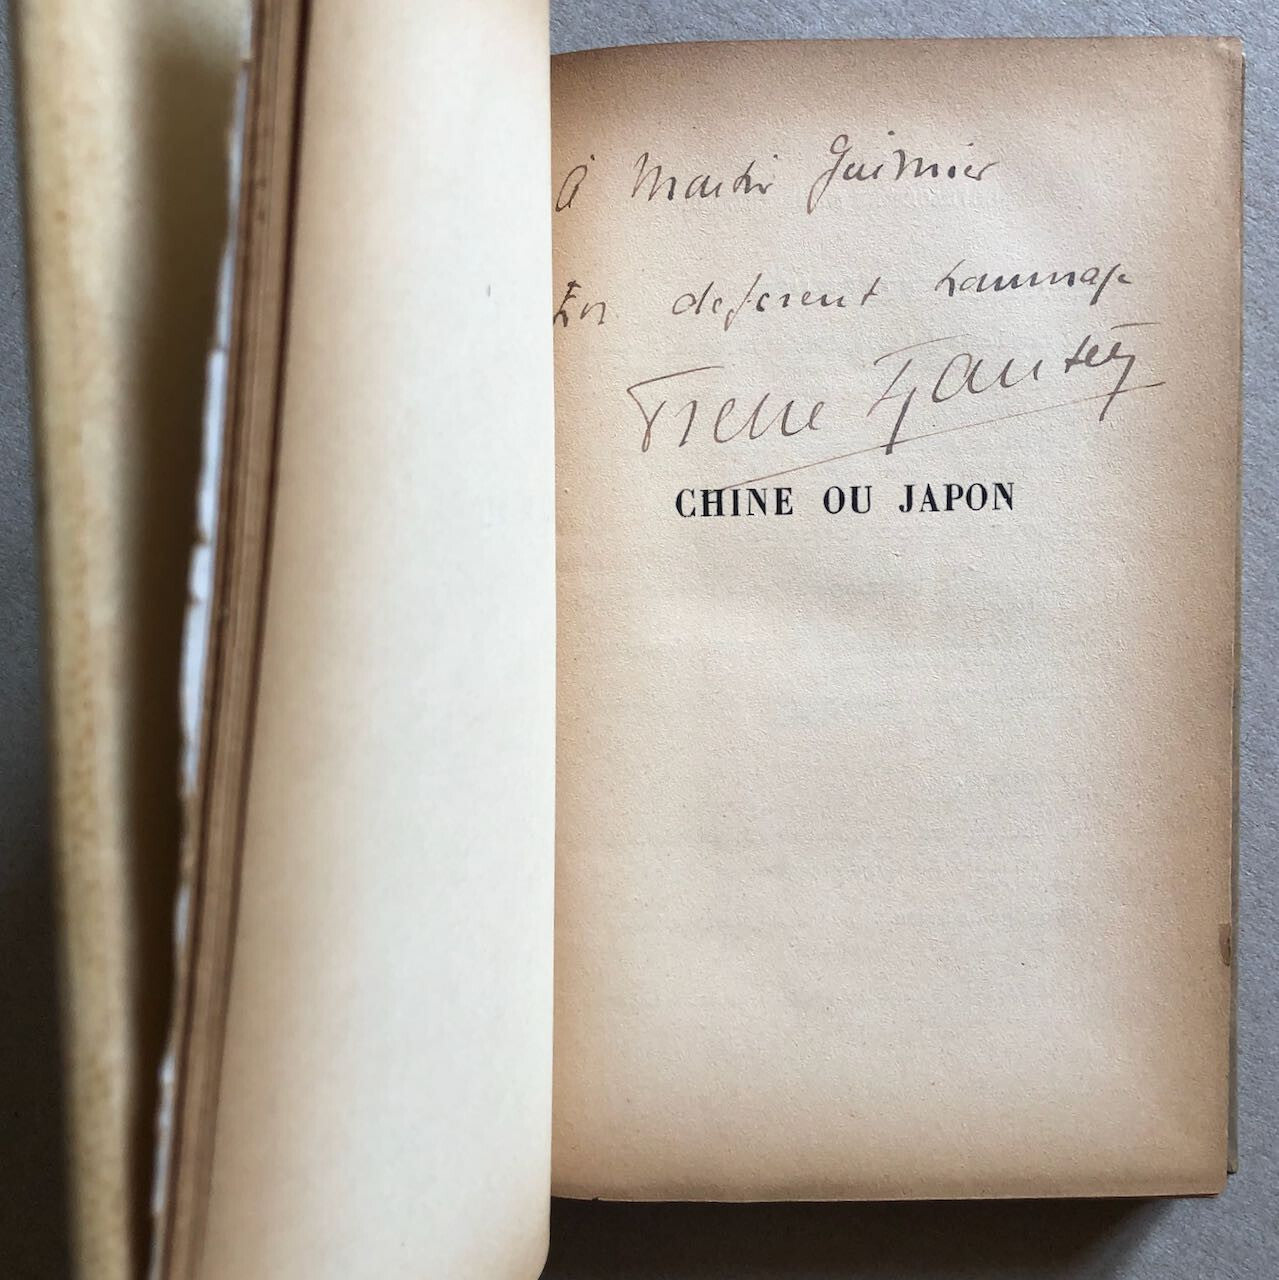 À Martin
En déférent hommage
Pierre Lyautey
CHINE OU JAPON